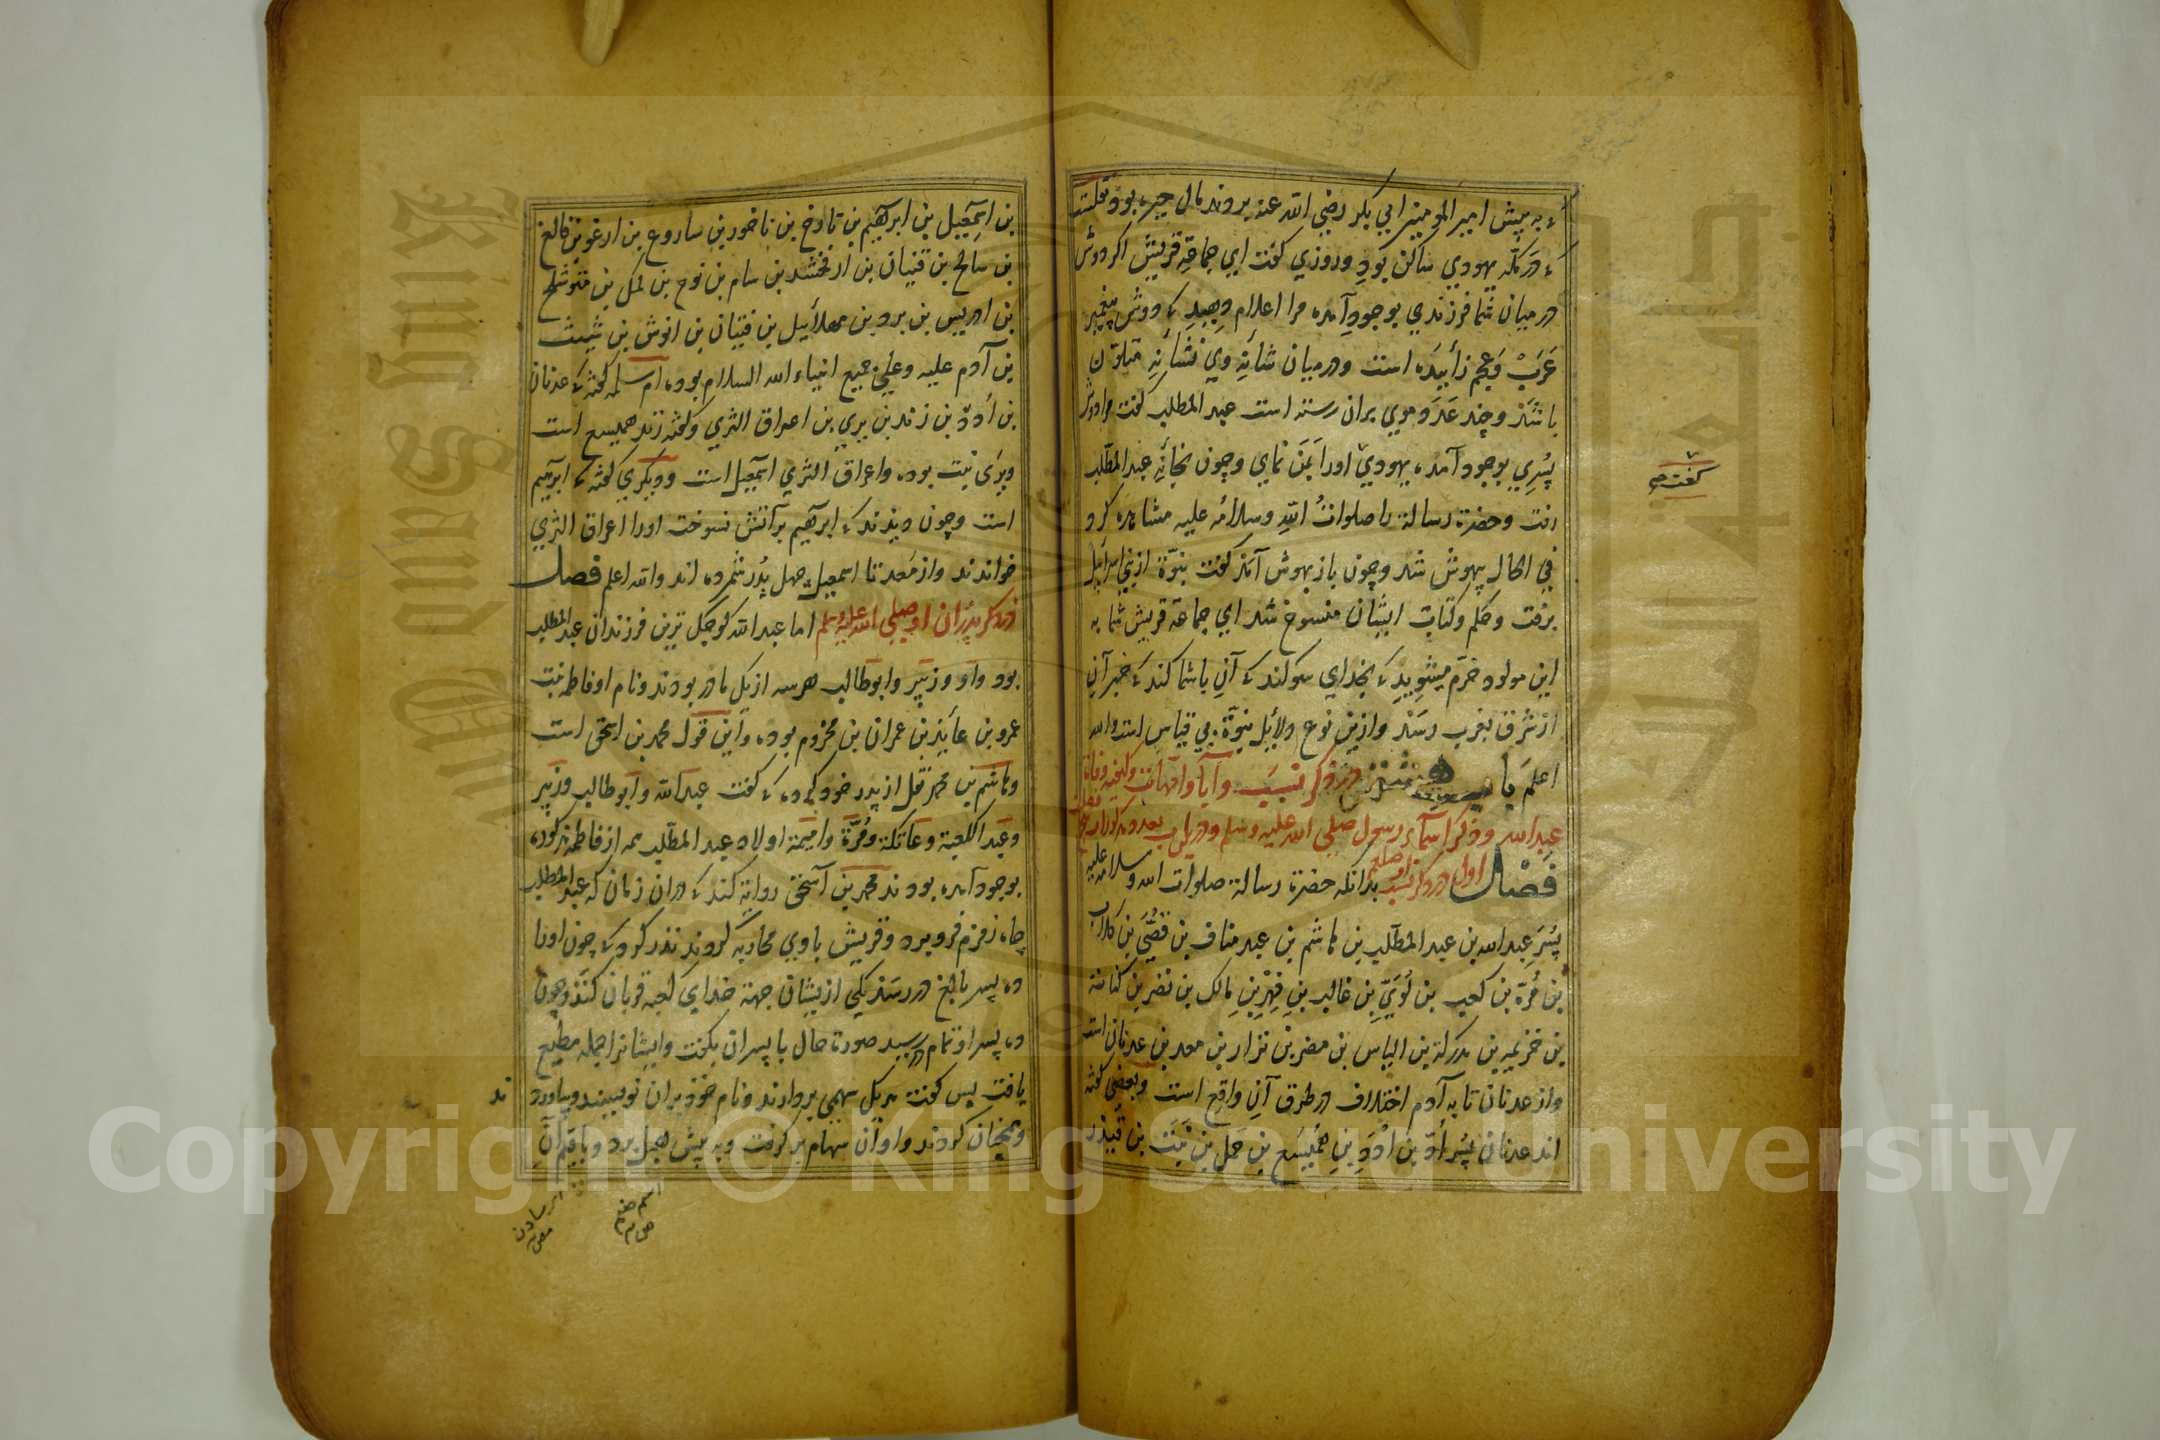 به پیش امیر المومنین ابی بکر رضی الله عنه بروند مال جیره بود
که در مکه یهودی ساکن بود و روزی کفت ای جماعة قریش اکر دوش
در میان شما فرزندی بوجود آمده مرا اعلام دهید که دوش پیغمبر
عرب و عجم زائیده است و در میان شانه وی نشانه متلون
باشد و چند عدد موی بران رسته است عبد المطلب کفت مرا دوش
پسری بوجود آمد یهودی اورا بمن نمای و چون بخانه عبد المطلب
رفت و حضرة رسالة را صلوات الله وسلامه علیه مشاهده کرد
فی الحال بیهوش شد و چون باز بهوش آمد کفت نبوة از بنی اسرائیل
برفت و حکم و کتاب ایشان منسوخ شد ای جماعة قریش شما به
این مولود خرم میشوید که بخدای سوکند که آن با شما کند که خبر آن
از شرق بغرب رسد و ازین نوع دلایل نبوة بی قیاس است والله
اعلم باب هشتم در ذکر نسب و آبا و امهات
عبد الله و ذکر اسماء رسول صلی الله علیه وسلم و درین باب
فصل اول در ذکر نسب او صلعم بدانکه حضرة رسالة صلوات الله وسلامه علیه
پسر عبد الله بن عبد المطلب بن هاشم بن عبد مناف بن قصی بن کلاب
بن مرة بن کعب بن لوی بن غالب بن فهر بن مالک بن نضر بن کنانة
بن خزیمه بن مدرکة بن الیاس بن مضر بن نزار بن معد بن عدنان است
واز عدنان تا به آدم اختلاف در طرق آن واقع است وبعضی کفته
اند عدنان پسر اد بن ادد بن همیسع بن حمل بن نبت بن قیذر
کفت صح
بن اسمعیل بن ابرهیم بن تارخ بن ناخور بن ساروع بن ارغو بن فالغ
بن سالح بن قنیان بن ارفخشد بن سام بن نوح بن لمک بن متوشلح
بن ادریس بن برد بن مهلائیل بن قنیان بن انوش بن شیث
بن آدم علیه وعلی جمیع انبیاء الله السلام بوده ام سلمه کفته که عدنان
بن ادد بن زند بن بری بن اعراق الثری وکفته زند همیسع است
وبری نبت بوده واعراق الثری اسمعیل است ودیکری کفته که ابرهیم
است وچون دیدند که ابرهیم بر آتش نسوخت اورا اعراق الثری
خواندند واز معد تا اسمعیل چهل پدر شمرده اند والله اعلم فصل
در ذکر پدران او صلی الله علیه وسلم اما عبد الله کوچک ترین فرزندان عبد المطلب
بود واو وزبیر وابو طالب هر سه از یک مادر بودند ونام او فاطمه بنت
عمرو بن عائذ بن عمران بن مخزوم بوده واین قول محمد بن اسحق است
وهاشم بن محمد نقل از پدر خود کرده که کفت عبد الله وابو طالب وزبیر
وعبد الکعبة وعاتکة ومرة وامیمة اولاد عبد المطلب همه از فاطمه مذکوره
بوجود آمده بودند محمد بن اسحق روایة کند که دران زمان که عبد المطلب
چاه زمزم فرو برد وقریش با وی محاربه کردند نذر کرد که چون اورا
ده پسر بالغ در رسد یکی ازیشان جهة خدای کعبه قربان کند وچون
ده پسر او تمام در رسید صورة حال با پسران بکفت وایشانرا جمله مطیع
یافت پس کفت هر یک سهمی بردارند ونام خود بران نویسند وبیاورد
ند
وهمچنان کردند واو آن سهام بر کرفت وبه پیش هبل برد وباقیم آن
اسم صنم